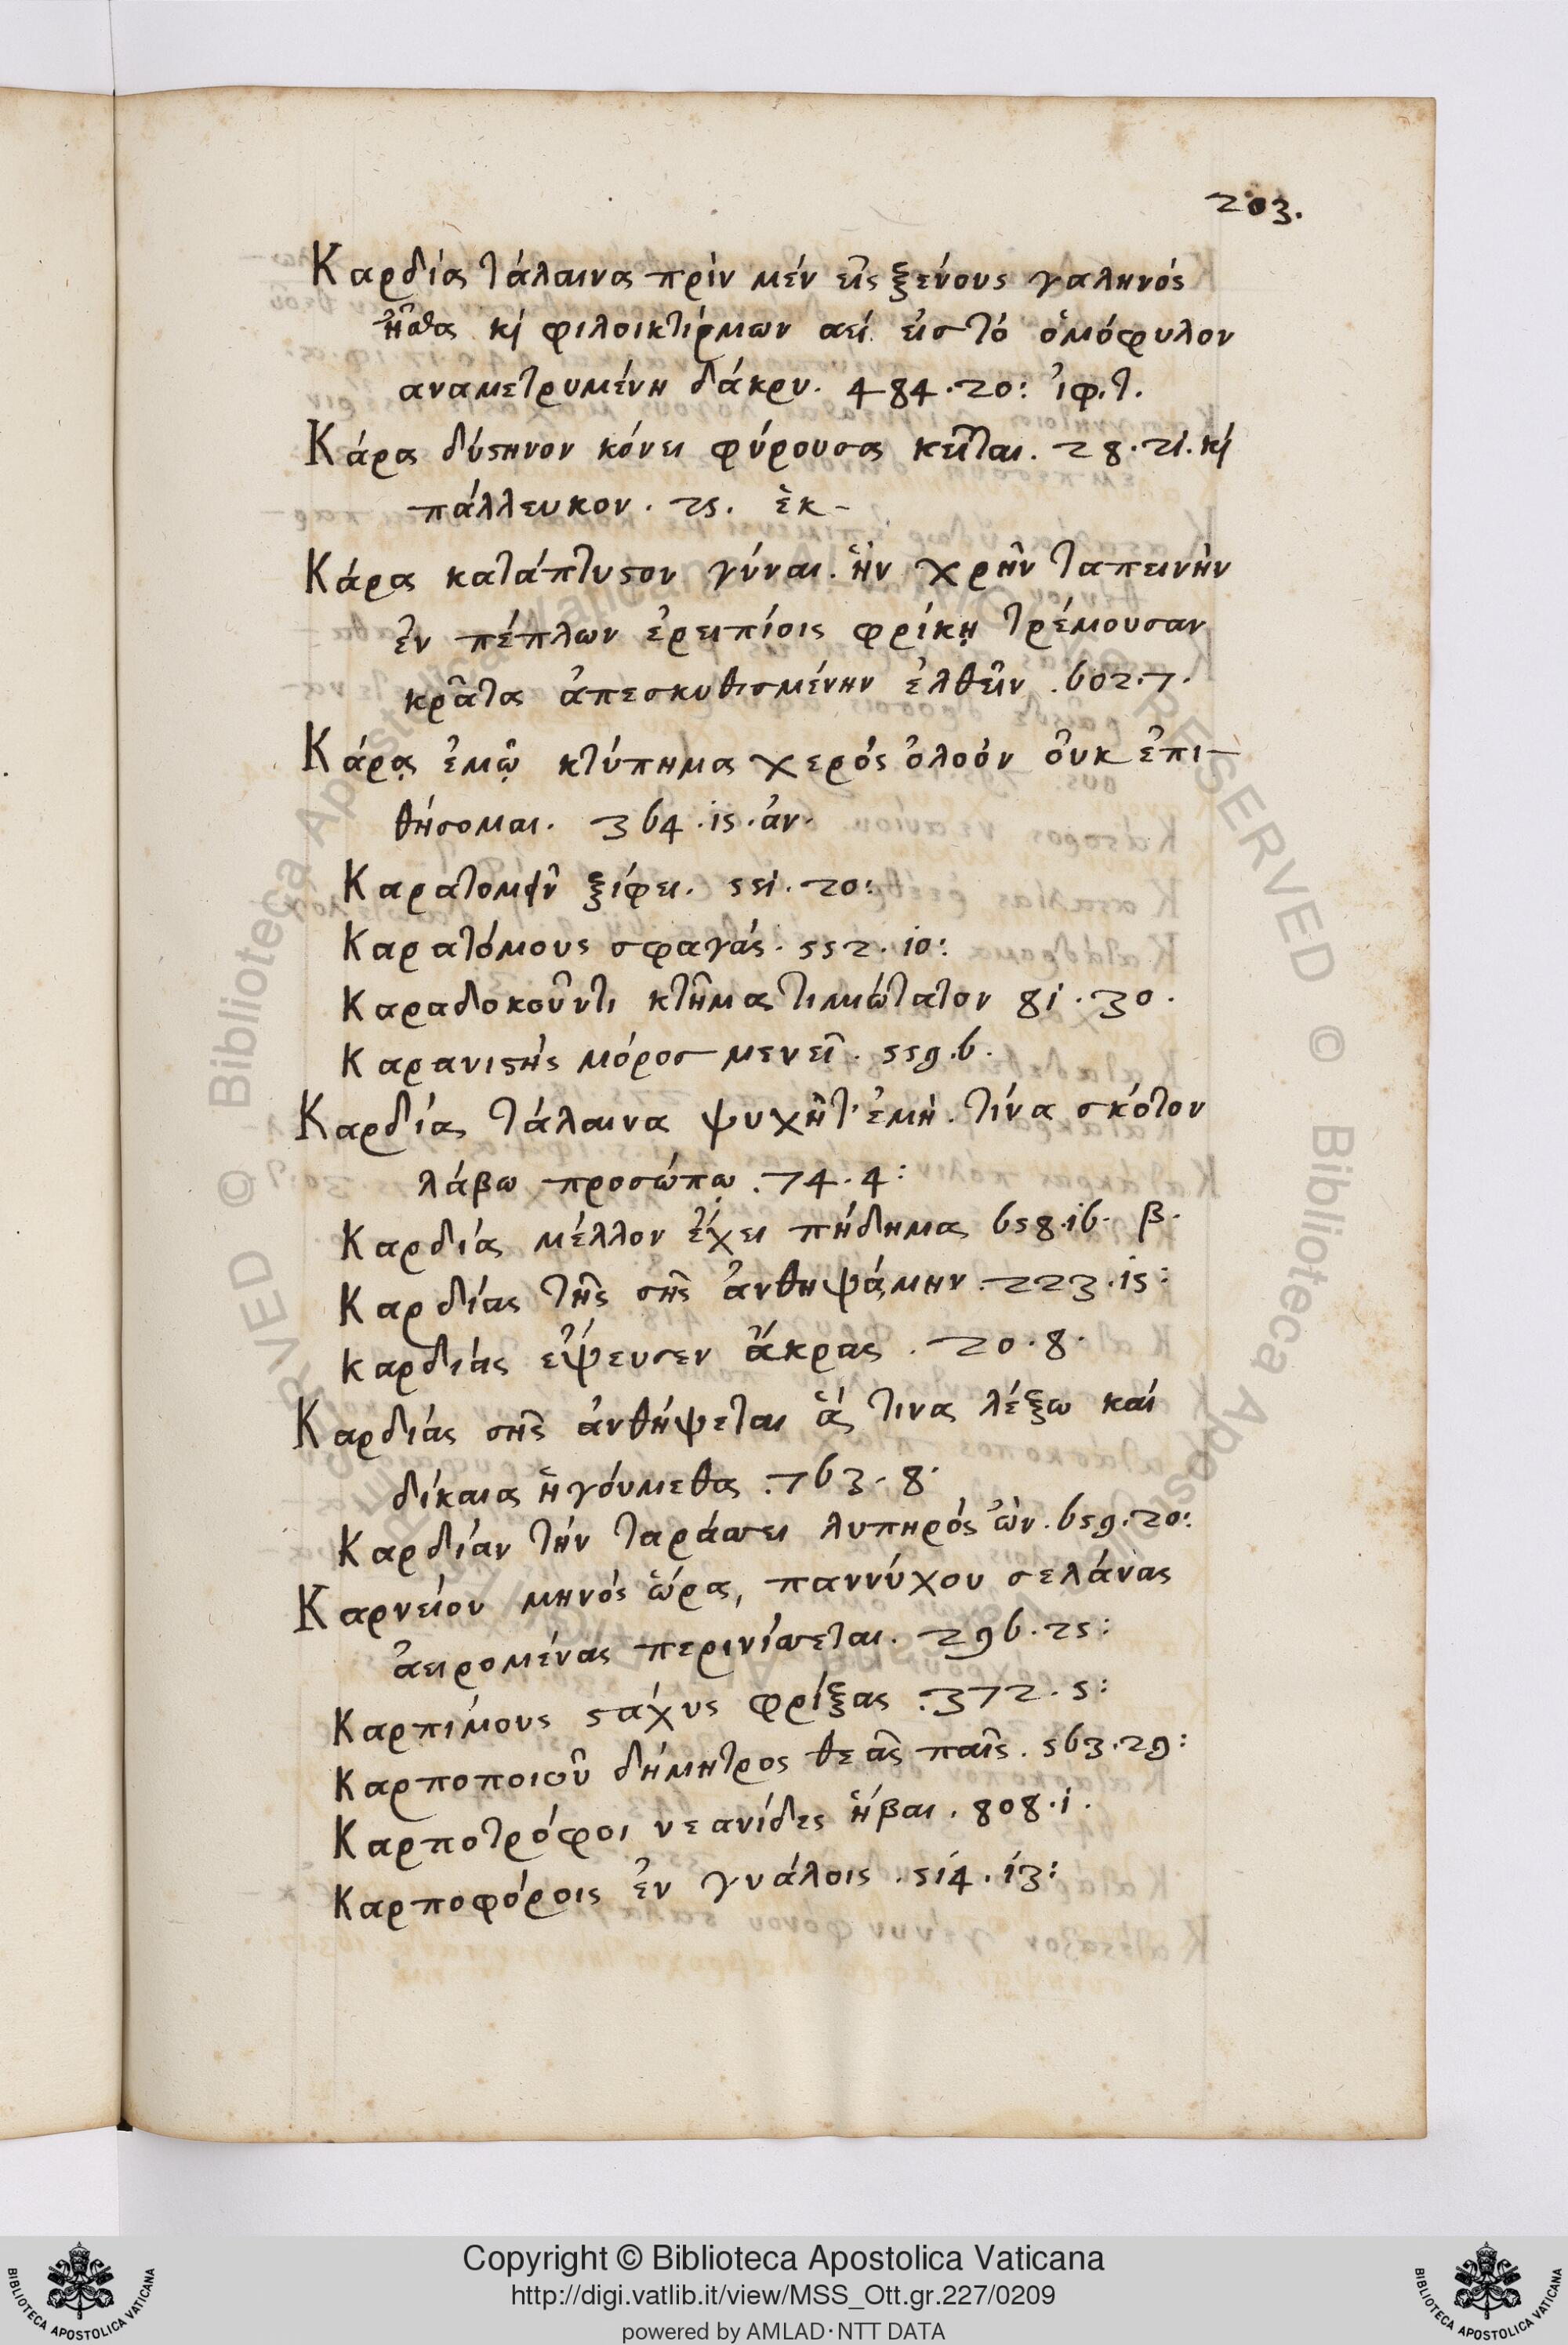 203.
Καρδία τάλαινα πρὶν μέν εἰς ξένους γαληνός
ἦσθα κὶ φιλοικτίρμων αεί εἰς τό ὁμόφυλον
αναμετρυμένη δάκρυ. 484.20: ἰφ.τ.
Κάρα δύςηνον κόνει φύρουσα κεῖται. 28.21. κὶ
πάλλευκον. 25. ἑκ-
Κάρα κατάπτυςον γύναι. ἣν χρῆν ταπεινὴν
ἐν πέπλων ἐρειπίοις φρίκῃ τρέμουσαν
κρᾶτα ἀπεσκυθισμένην ἐλθεῖν. 602.7.
Κάρᾳ ἐμῷ κτύπημα χερός ὀλοόν ὀυκ ἐπι-
θήσομαι. 364.15. ἀν.
Καρατομεῖν ξίφει. 551.20:
Καρατόμους σφαγάς. 552.10:
Καραδοκοῦντι κτῆμα τιμιώτατον 81.30.
Καρανιςής μόρος μενεῖ. 559.6.
Καρδία τάλαινα ψυχῆτ' ἐμὴ. τίνα σκότον
λάβω προσώπῳ. 74.4:
Καρδία μέλλον ἔχει πήδημα 658.16. β.
Καρδίας τῆς σῆς ἀνθηψάμην. 223.15:
Καρδιάς εἔψευσεν ἄκρας. 20.8.
Καρδιάς σῆς ἀνθήψεται ἅ τινα λέξω καί
δίκαια ἡγούμεθα. 763.8.
Καρδιάν τήν ταράσσει λυπηρός ὢν. 659.20:
Καρνείου μηνός ὥρα, παννύχου σελάνας
ἀειρομένας περινίσσεται. 296.25:
Καρπίμους ςάχυς φρίξας. 372.5:
Καρποποιοῦ δήμητρος θεᾶς παῖς. 563.29:
Καρποτρόφοι νεανίδες ἥβαι. 808.1.
Καρποφόροις ἐν γυάλοις. 514.13:
Copyright © Biblioteca Apostolica Vaticana
http://digi.vatlib.it/view/MSS_Ott.gr.227/0209
powered by AMLAD·NTT DATA